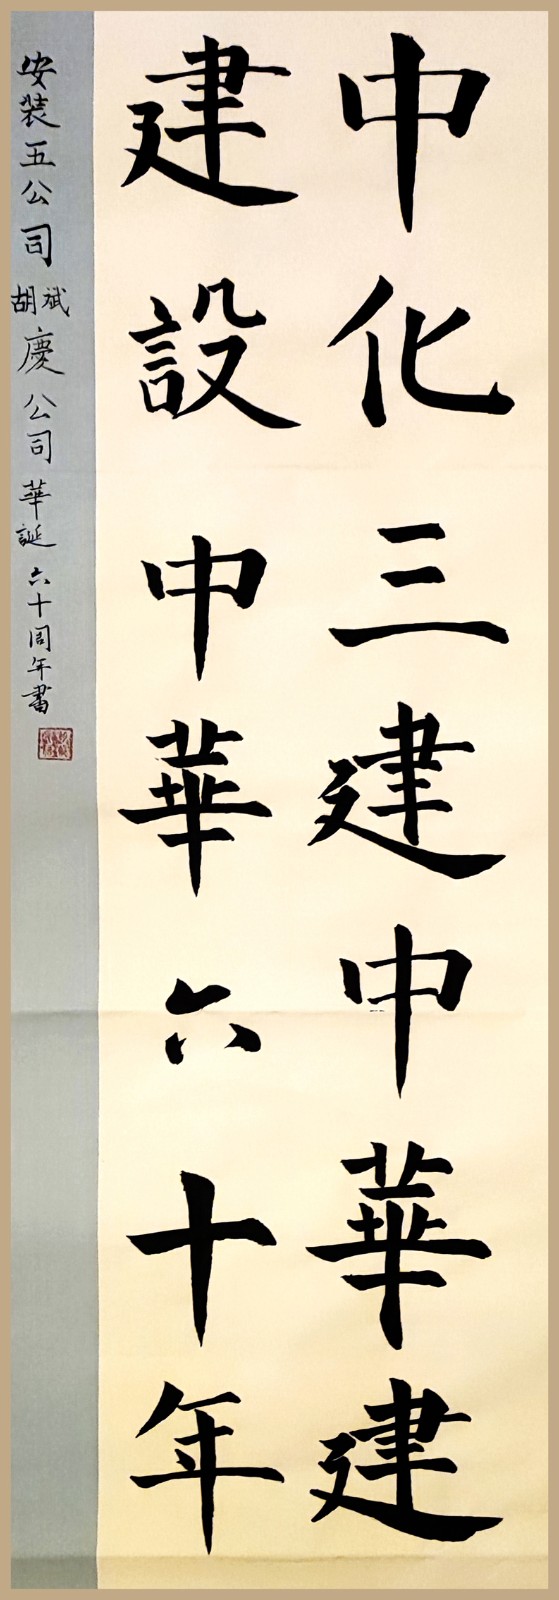 中化三建中華建
建設中華六十年
安装五公司胡斌慶公司華誕六十周年書